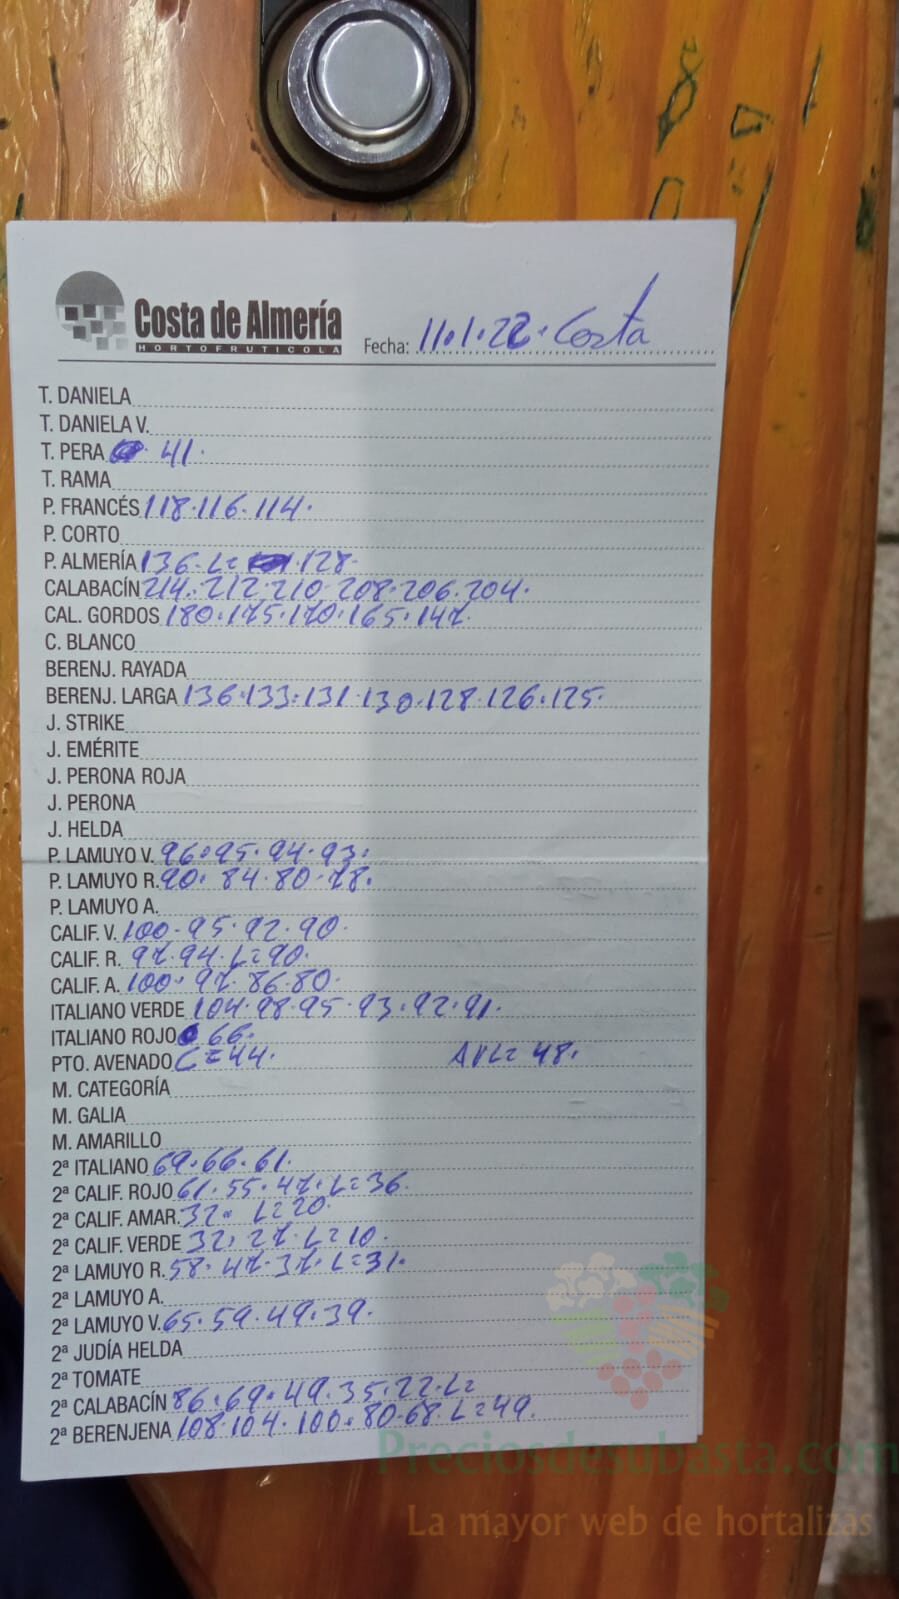 Costa de Almería
HORTOFRUTICOLA
Fecha: 11.1.22. Costa
T. DANIELA
T. DANIELA V.
T. PERA 41.
T. RAMA
P. FRANCÉS 118.116.114.
P. CORTO
P. ALMERÍA 136. L= 128.
CALABACÍN 214.212.210.208.206.204.
CAL. GORDOS 180.175.170.165.147.
C. BLANCO
BERENJ. RAYADA
BERENJ. LARGA 136.133.131.130.128.126.125.
J. STRIKE
J. EMÉRITE
J. PERONA ROJA
J. PERONA
J. HELDA
P. LAMUYO V. 96.95.94.93.
P. LAMUYO R. 90.84.80.78.
P. LAMUYO A.
CALIF. V. 100.95.92.90.
CALIF. R. 97.94.L=90.
CALIF. A. 100.97.86.80.
ITALIANO VERDE 104.98.95.93.92.91.
ITALIANO ROJO 66.
PTO. AVENADO C=44. AVL= 48.
M. CATEGORÍA
M. GALIA
M. AMARILLO
2ª ITALIANO 69.66.61.
2ª CALIF. ROJO 61.55.47.L=36.
2ª CALIF. AMAR. 32. L=20.
2ª CALIF. VERDE 32.27.L=10.
2ª LAMUYO R. 58.47.37.L=31.
2ª LAMUYO A.
2ª LAMUYO V. 65.59.49.39.
2ª JUDÍA HELDA
2ª TOMATE
2ª CALABACÍN 86.69.49.35.22.L=
2ª BERENJENA 108.104.100.80.68.L=49.
Preciosdesubasta.com
La mayor web de hortalizas